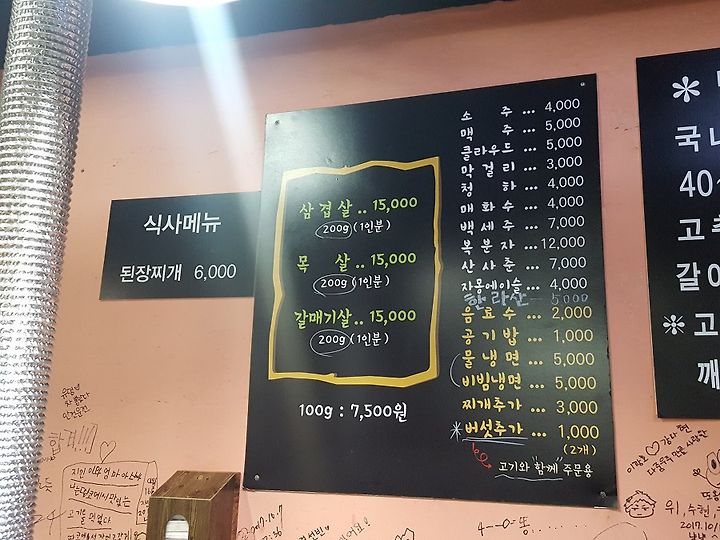 식사메뉴
된장찌개 6,000
삼겹살.. 15,000
200g (1인분)
목 살.. 15,000
200g (1인분)
갈매기살.. 15,000
200g (1인분)
100g : 7,500원
소 주 ... 4,000
맥 주 ... 5,000
클라우드 ... 5,000
막걸리 ... 3,000
청 하 ... 4,000
매화수 ... 4,000
백세주 ... 7,000
복분자 ... 12,000
산사춘 ... 7,000
자몽에이슬 ... 4,000
한라산 5000
음료수 ... 2,000
공기밥 ... 1,000
물냉면 ... 5,000
비빔냉면 ... 5,000
찌개추가 ... 3,000
*버섯추가 ... 1,000
(2개)
고기와 "함께" 주문용
국내
40
고추
갈아
※고
깨
합격!!!
위, 수현,
2017.10